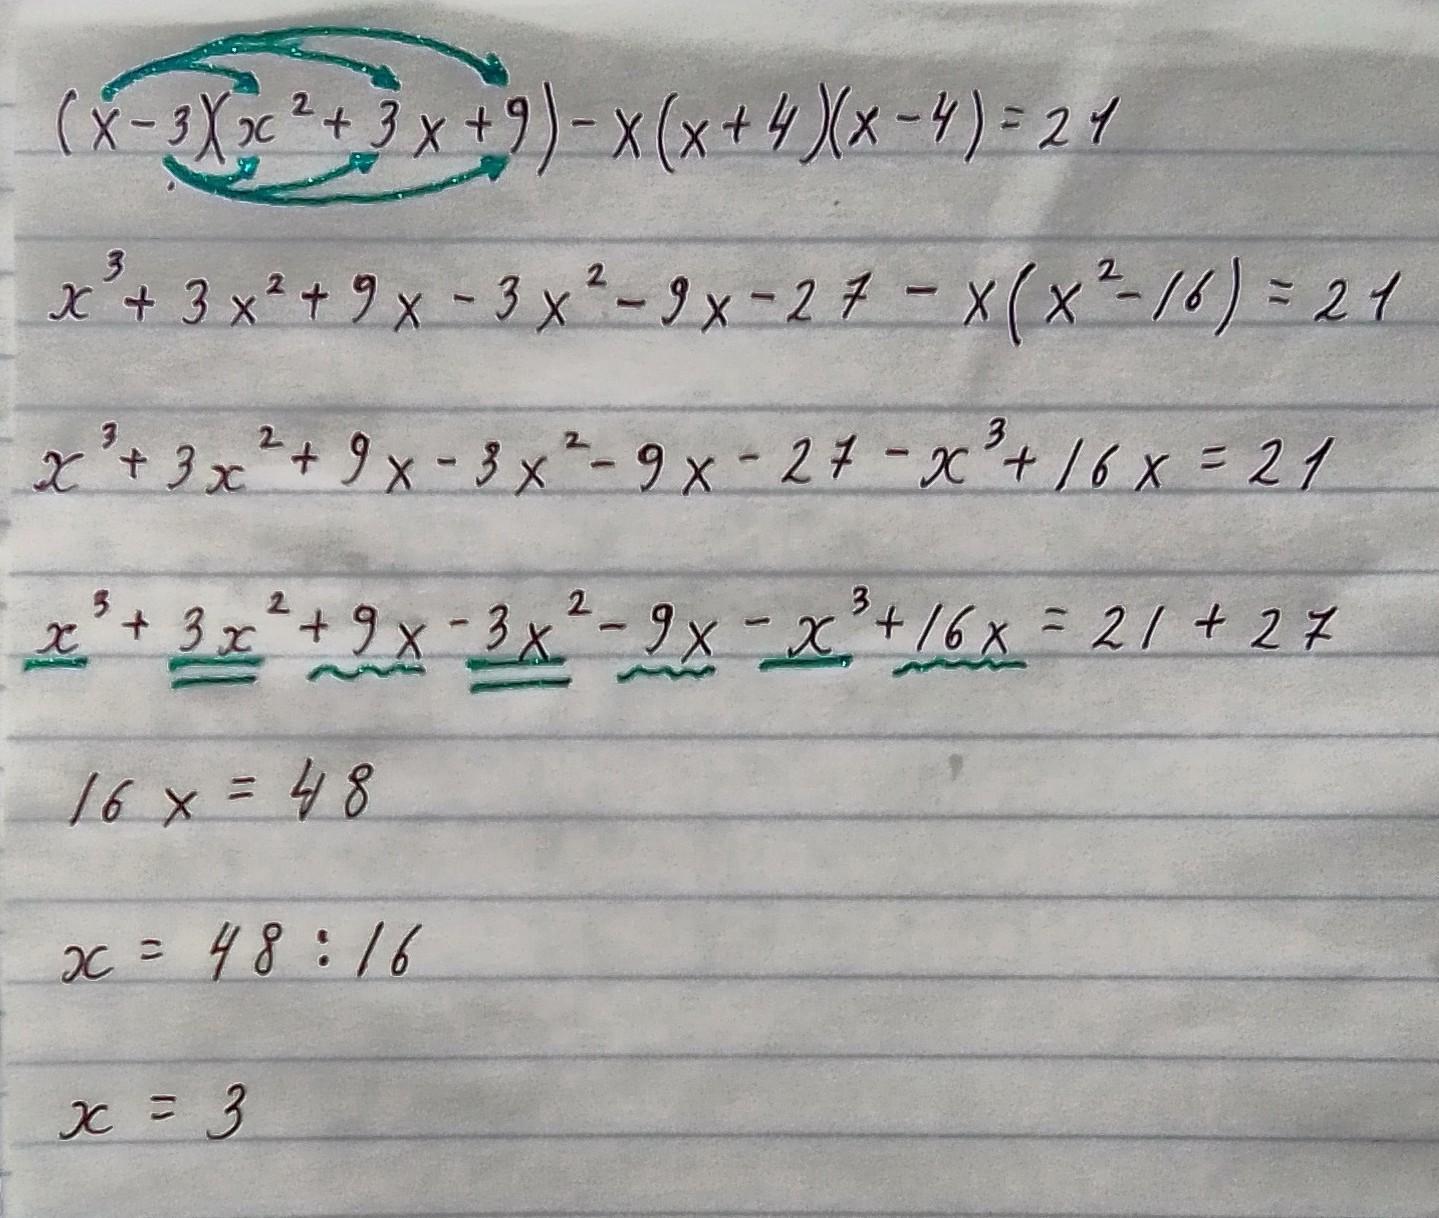 (x-3)(x²+3x+9)-x(x+4)(x-4)=21
x³+3x²+9x-3x²-9x-27-x(x²-16)=21
x³+3x²+9x-3x²-9x-27-x³+16x=21
x³+3x²+9x-3x²-9x-x³+16x=21+27
16x=48
x=48:16
x=3